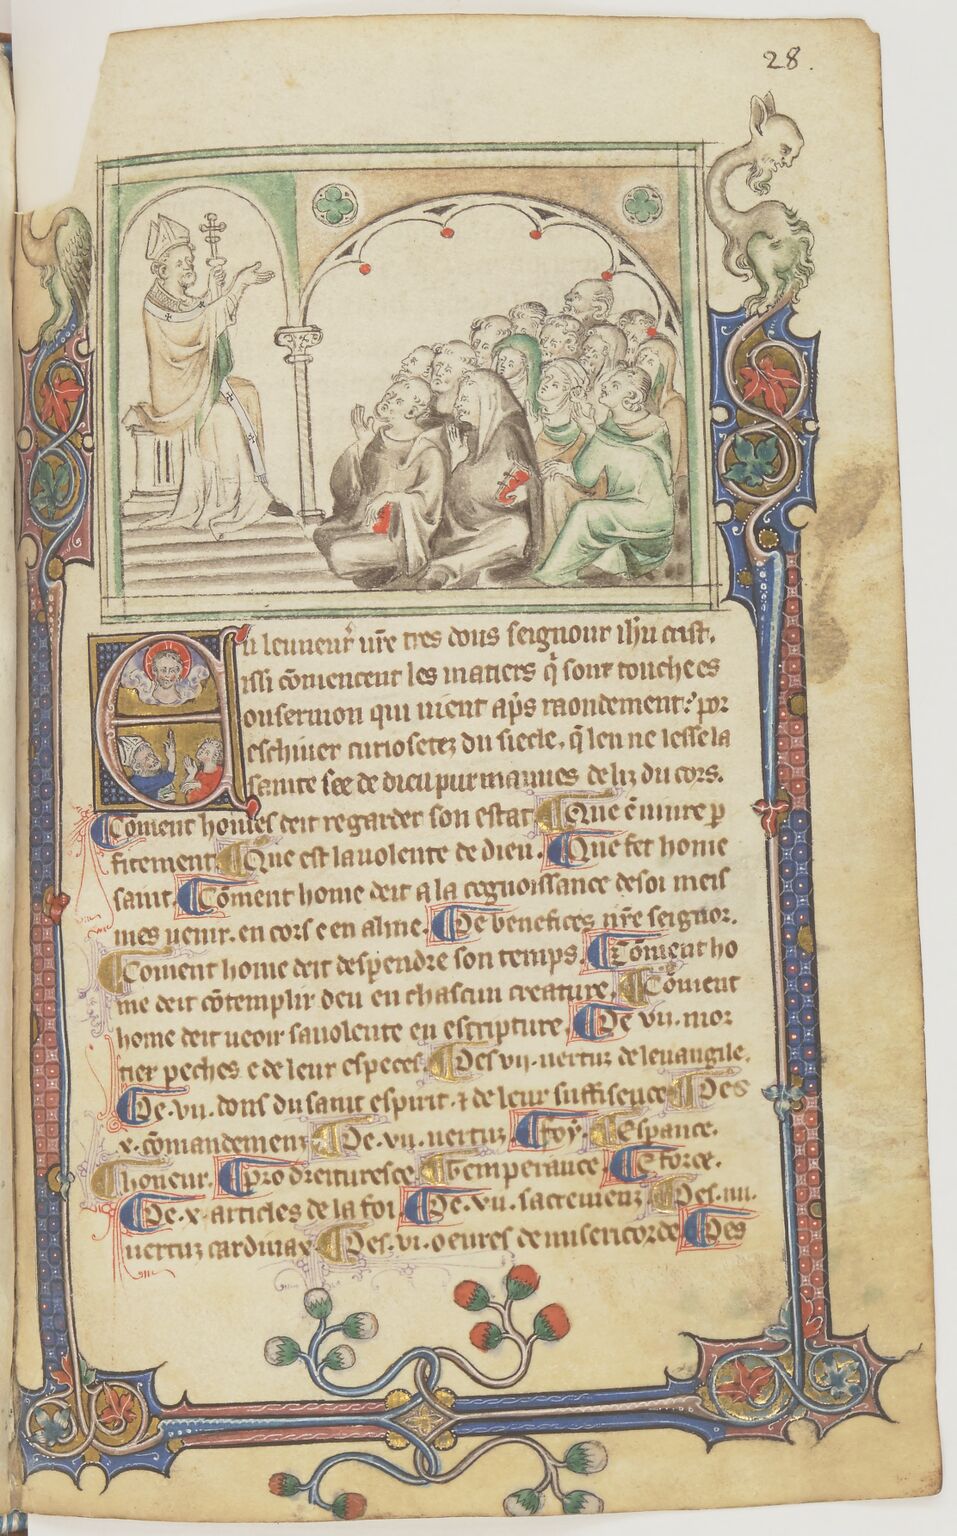 28.
En leuneur n̄re tres dous seignour ih̄u crist.
issi cōmencent les matiers q̄ sont touchees
ou sermon qui uient ap̄s raondement: por
eschiuer curiosetez du siecle, q̄ len ne lesse la
sainte fee de dieu pur maunes de liz du cors.
Cōment homes deit regarder son estat Que ē uiure p
fitement Que est la uolente de dieu. Que fet home
saint. Cōment home deit a la cognoissance de soi meis
mes uenir. en cors e en alme. De benefices n̄re seignor.
Coment home deit despendre son temps. Cōment ho
me deit cōtemplir deu en chascun creature. Cōment
home deit ueoir sa uolente en escripture. De vii. mor
tier peches e de leur especes. Des vii. uertuz de leuangile.
De .vii. dons du saint espirit. ⁊ de leur suffisence Des
.x. cōmandemenz De .vii. uertuz. Foy. Espance.
honeur. pro dreituresce. Temperance De force.
De .x. articles de la foi. De .vii. sacremenz Des .iiii.
uertuz cardinax Des .vi. oeures de misericorde Des